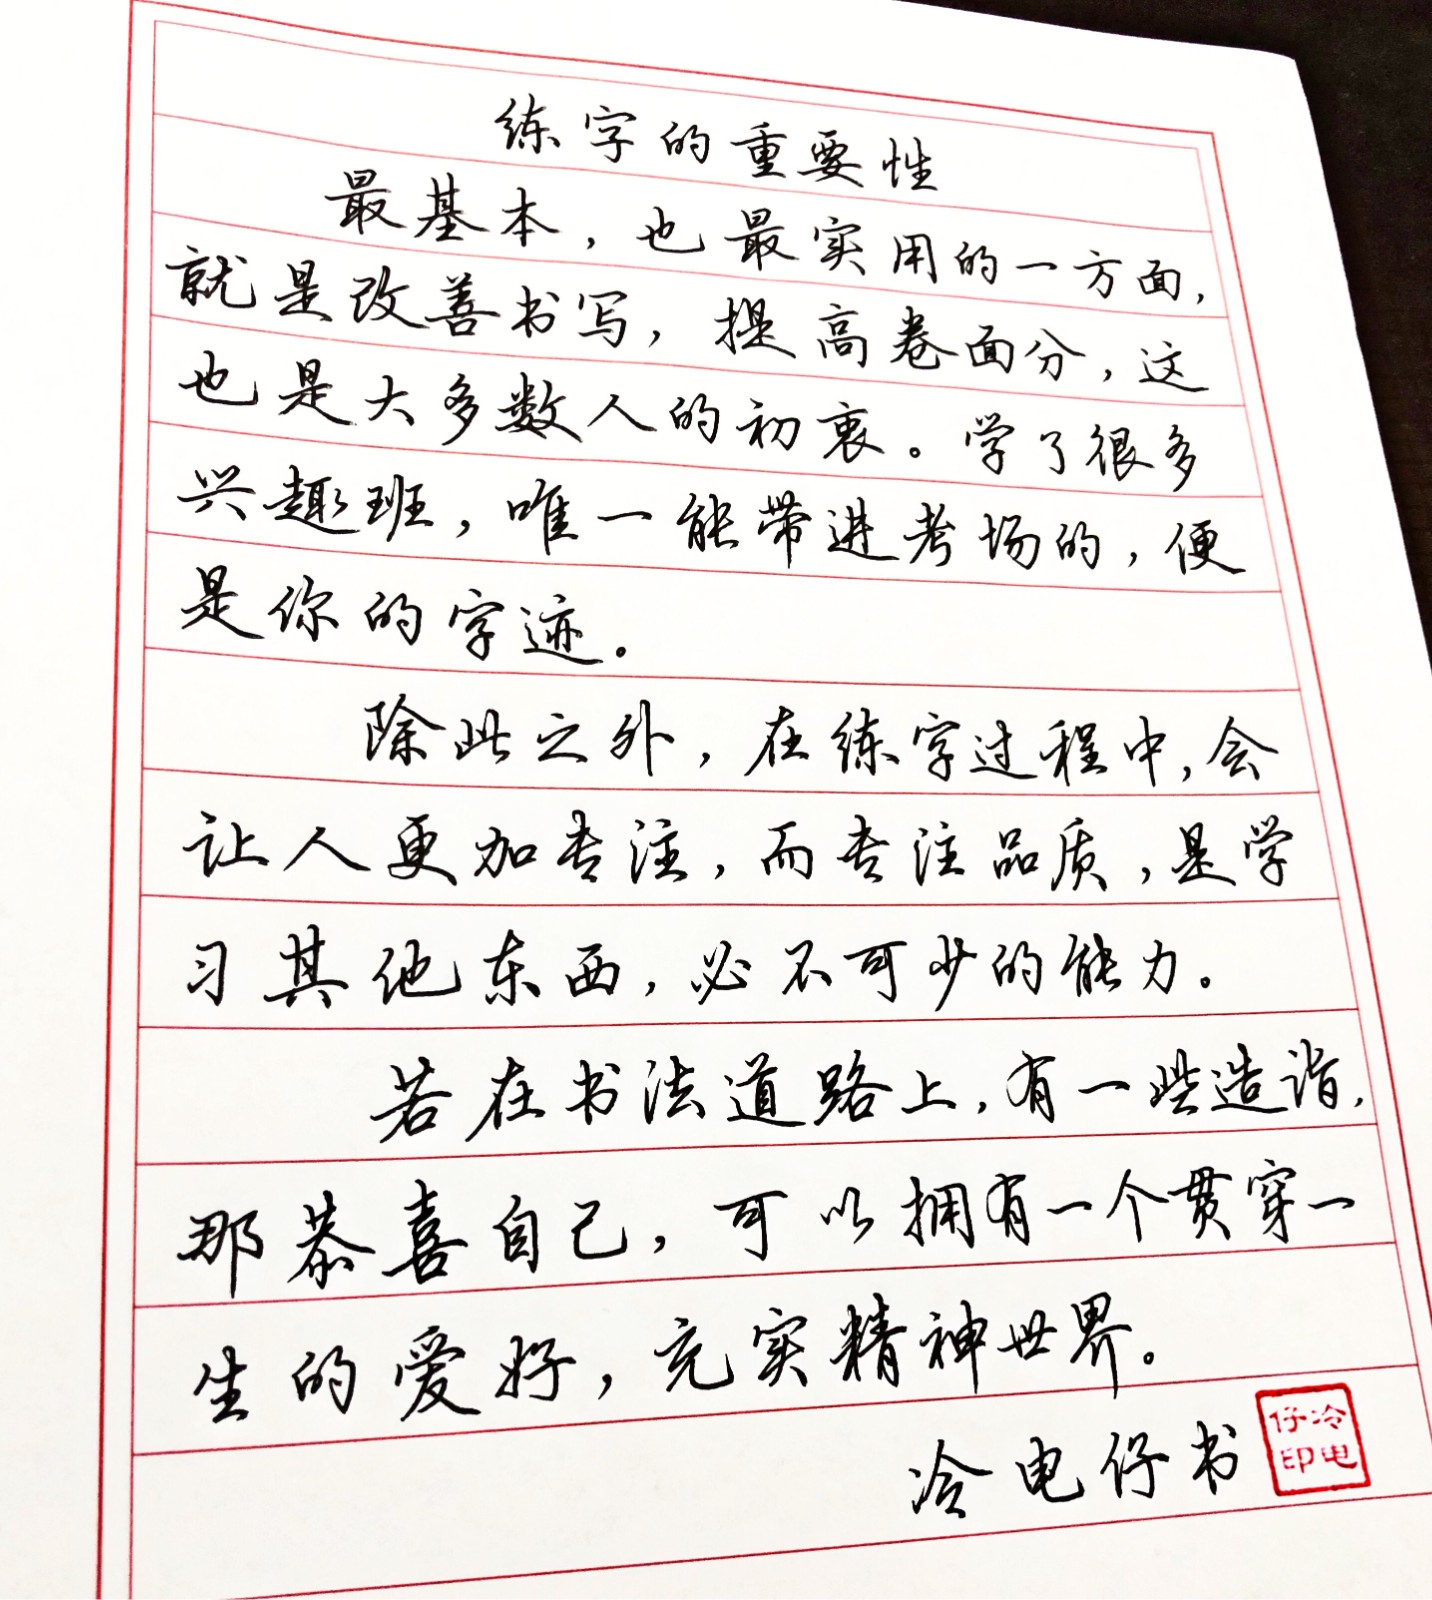 练字的重要性
最基本，也最实用的一方面，
就是改善书写，提高卷面分，这
也是大多数人的初衷。学了很多
兴趣班，唯一能带进考场的，便
是你的字迹。
除此之外，在练字过程中，会
让人更加专注，而专注品质，是学
习其他东西，必不可少的能力。
若在书法道路上，有一些造诣，
那恭喜自己，可以拥有一个贯穿一
生的爱好，充实精神世界。
冷电仔书
冷电
仔印